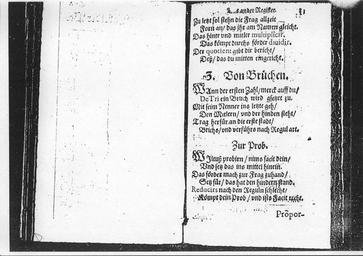 ander Regiſter.
Zu letſt ſol ſtehn die Frag allzeit
Forn an/ das jhr am Namen gleicht.
Das hinter vnd mitler multiplicir.
Das kömpt durchs förder diuidir.
Der quotient gibt dir bericht/
Deß/ das du mitten eingericht.
3. Von Brüchen.
WAnn der erſten Zahl/ merck auff du/
De Tri ein Bruch wird geſetzt zu.
Mit ſeim Nenner ins letſte geh/
Den Mitlern/ vnd der hinden ſteht/
Trag herfür an die erſte ſtadt/
Brichs/ vnd verführs nach Regul art.
Zur Prob.
WIltuß probirn/ nims facit dein/
Vnd ſetz das ins mittel hinein.
Das förder mach zur Frag zuhand/
Setz für/ das hat den hindern ſtand.
Reducirs nach den Reguln ſchlecht/
Kömpt dein Prob/ vnd iſts Facit recht.
Propor-